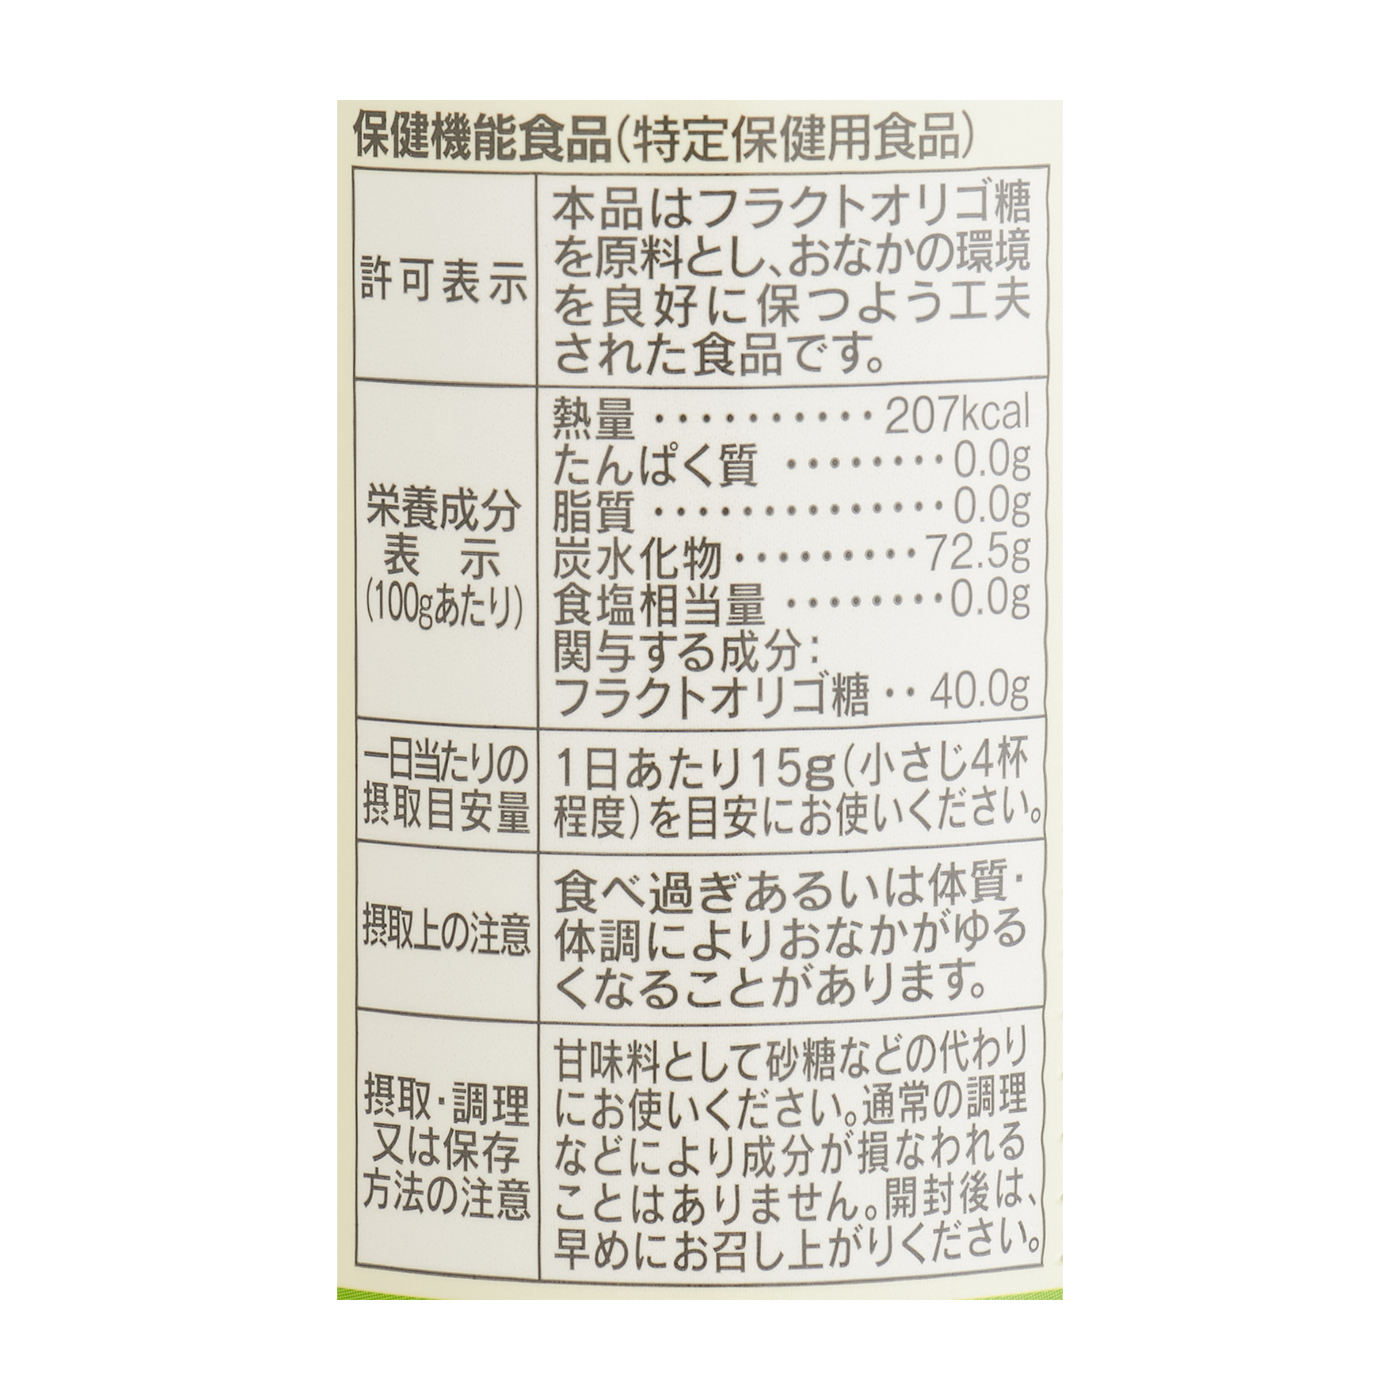 保健機能食品(特定保健用食品)
許可表示
本品はフラクトオリゴ糖
を原料とし、おなかの環境
を良好に保つよう工夫
された食品です。
栄養成分
表 示
(100gあたり)
熱量 ・・・・・・・・・・ 207kcal
たんぱく質 ・・・・・・・・0.0g
脂質 ・・・・・・・・・・・・・0.0g
炭水化物・・・・・・・・・72.5g
食塩相当量 ・・・・・・・・0.0g
関与する成分:
フラクトオリゴ糖・・40.0g
一日当たりの
摂取目安量
1日あたり15g(小さじ4杯
程度)を目安にお使いください。
摂取上の注意
食べ過ぎあるいは体質・
体調によりおなかがゆる
くなることがあります。
摂取・調理
又は保存
方法の注意
甘味料として砂糖などの代わり
にお使いください。通常の調理
などにより成分が損なわれる
ことはありません。開封後は、
早めにお召し上がりください。